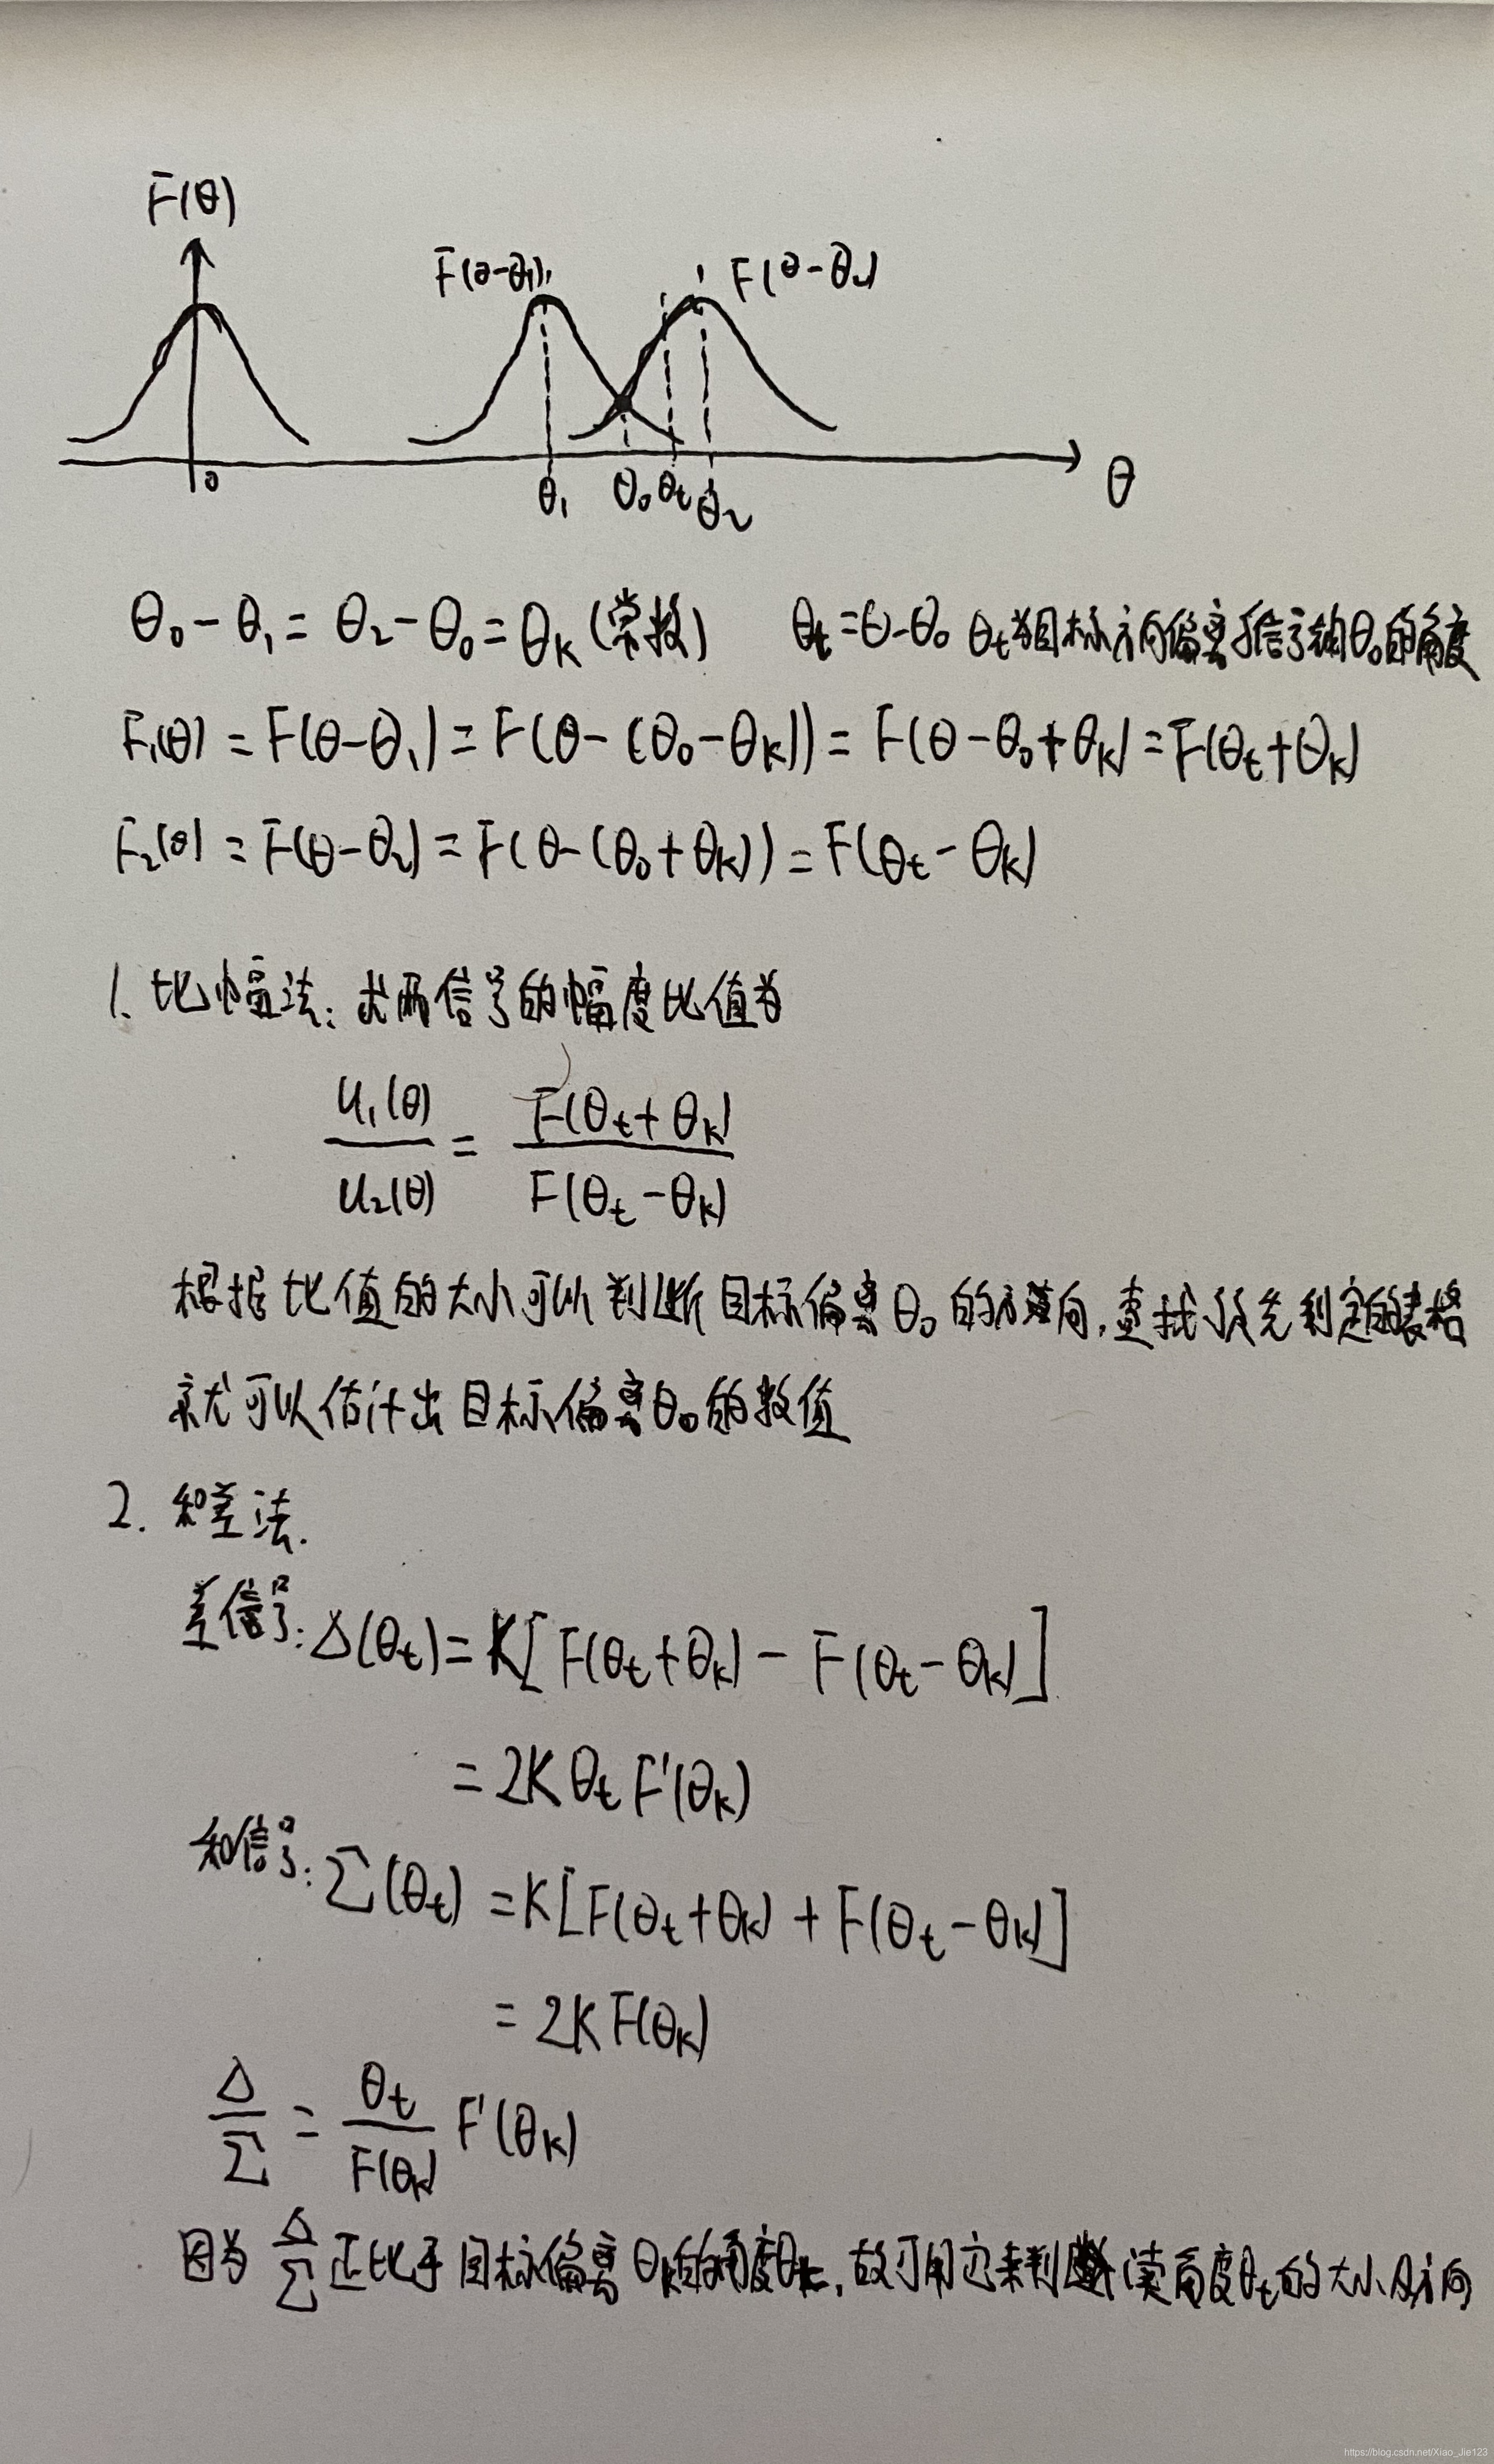 F(θ)
F(θ-θ₁) F(θ-θ₂)
0 θ₁ θ₀ θt θ₂ θ
θ₀-θ₁=θ₂-θ₀=θk(常数) θt=θ-θ₀ θt为目标方向偏离等信号轴θ₀的角度
F₁(θ)=F(θ-θ₁)=F(θ-(θ₀-θk))=F(θ-θ₀+θk)=F(θt+θk)
F₂(θ)=F(θ-θ₂)=F(θ-(θ₀+θk))=F(θt-θk)
1. 比幅法: 求两信号的幅度比值为
u₁(θ)/u₂(θ) = F(θt+θk)/F(θt-θk)
根据比值的大小可以判断目标偏离θ₀的方向,查找预先制定的表格
就可以估计出目标偏离θ₀的数值
2. 和差法.
差信号: Δ(θt)=K[F(θt+θk)-F(θt-θk)]
=2Kθt F'(θk)
和信号: Σ(θt)=K[F(θt+θk)+F(θt-θk)]
=2KF(θk)
Δ/Σ = θt/F(θk) F'(θk)
因为 Δ/Σ 正比于目标偏离θ的角度θt,故可用它来判读角度θt的大小及方向
https://blog.csdn.net/Xiao_Jie123